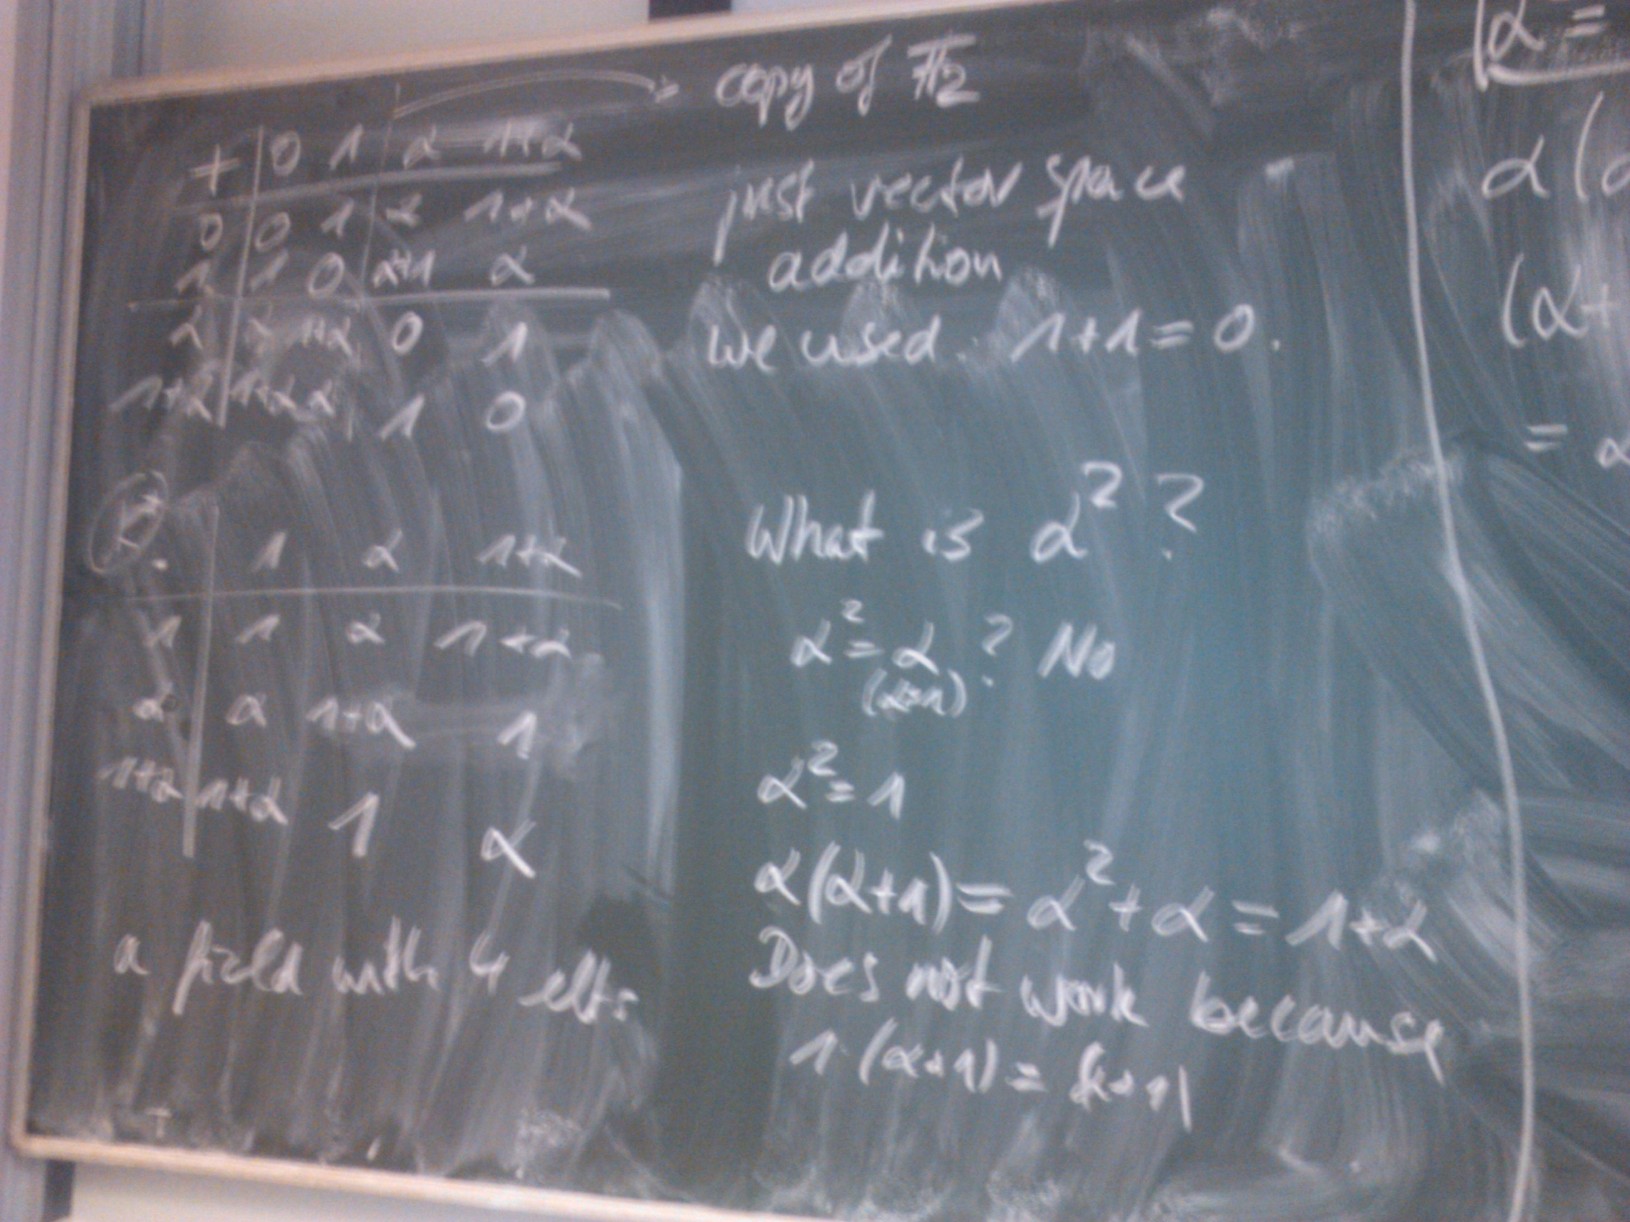 copy of 𝔽2
+ 0 1 α 1+α
0 0 1 α 1+α
1 1 0 α+1 α
α α 1+α 0 1
1+α 1+α α 1 0
just vector space
addition
we used. 1+1=0.
· 1 α 1+α
1 1 α 1+α
α α 1+α 1
1+α 1+α 1 α
a field with 4 elts.
What is α² ?
α² = α ? No
(α=1)
α² = 1
α(α+1) = α² + α = 1+α
Does not work because
1·(α+1) = (α+1)
α =
α (
(α+
= α